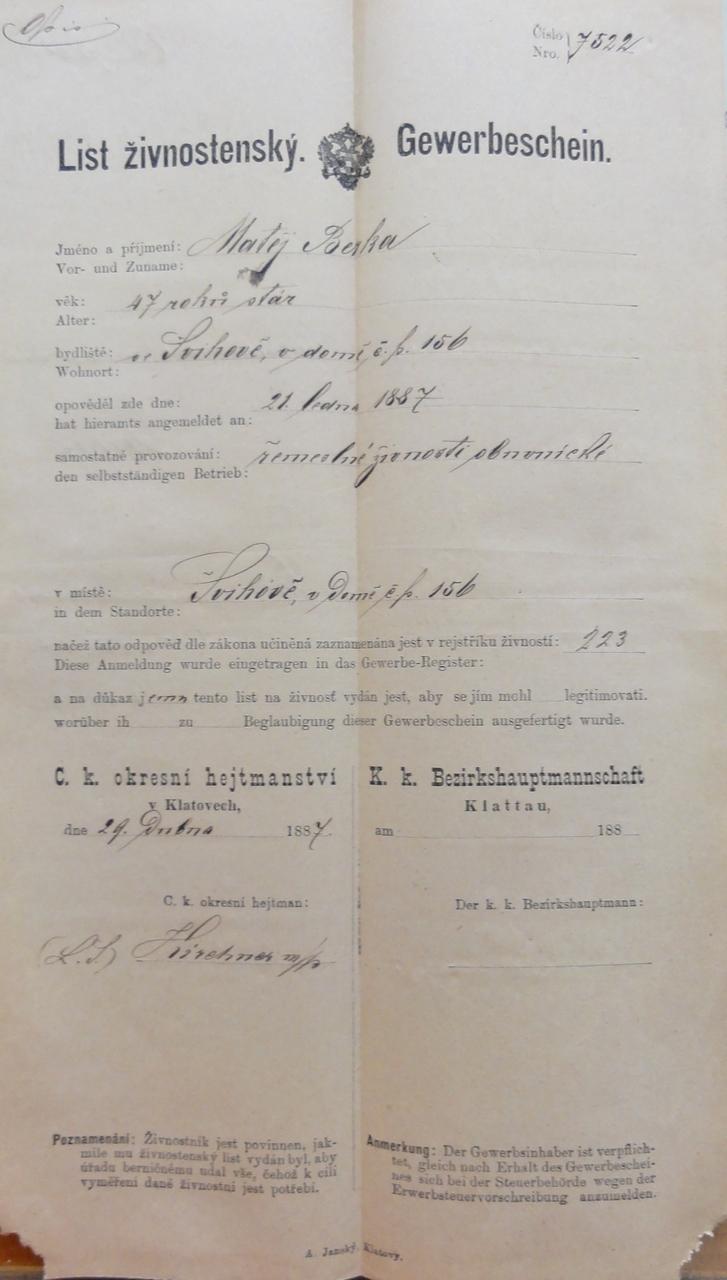 Opis
Číslo
Nro. 7522
List živnostenský. Gewerbeschein.
Jméno a příjmení: Matěj Beska
Vor- und Zuname:
věk: 47 roků stár
Alter:
bydliště: ve Švihově, v domě č. p. 156
Wohnort:
opověděl zde dne: 21. ledna 1887
hat hieramts angemeldet an:
samostatné provozování: řemeslné živnosti obuvnické
den selbstständigen Betrieb:
v místě: Švihově, v domě č. p. 156
in dem Standorte:
načež tato odpověď dle zákona učiněná zaznamenána jest v rejstříku živností: 223
Diese Anmeldung wurde eingetragen in das Gewerbe-Register:
a na důkaz jemu tento list na živnosť vydán jest, aby se jím mohl legitimovati.
worüber ih zu Beglaubigung dieser Gewerbeschein ausgefertigt wurde.
C. k. okresní hejtmanství
v Klatovech,
dne 29. Dubna 1887.
C. k. okresní hejtman:
(L.S.) Kirchner m/p
K. k. Bezirkshauptmannschaft
Klattau,
am 188
Der k. k. Bezirkshauptmann:
Poznamenání: Živnostník jest povinnen, jak-
mile mu živnostenský list vydán byl, aby
úřadu berničnému udal vše, čehož k cíli
vyměření daně živnostní jest potřebí.
Anmerkung: Der Gewerbsinhaber ist verpflich-
tet, gleich nach Erhalt des Gewerbeschei-
nes sich bei der Steuerbehörde wegen der
Erwerbsteuervorschreibung anzumelden.
A. Janský, Klatovy.